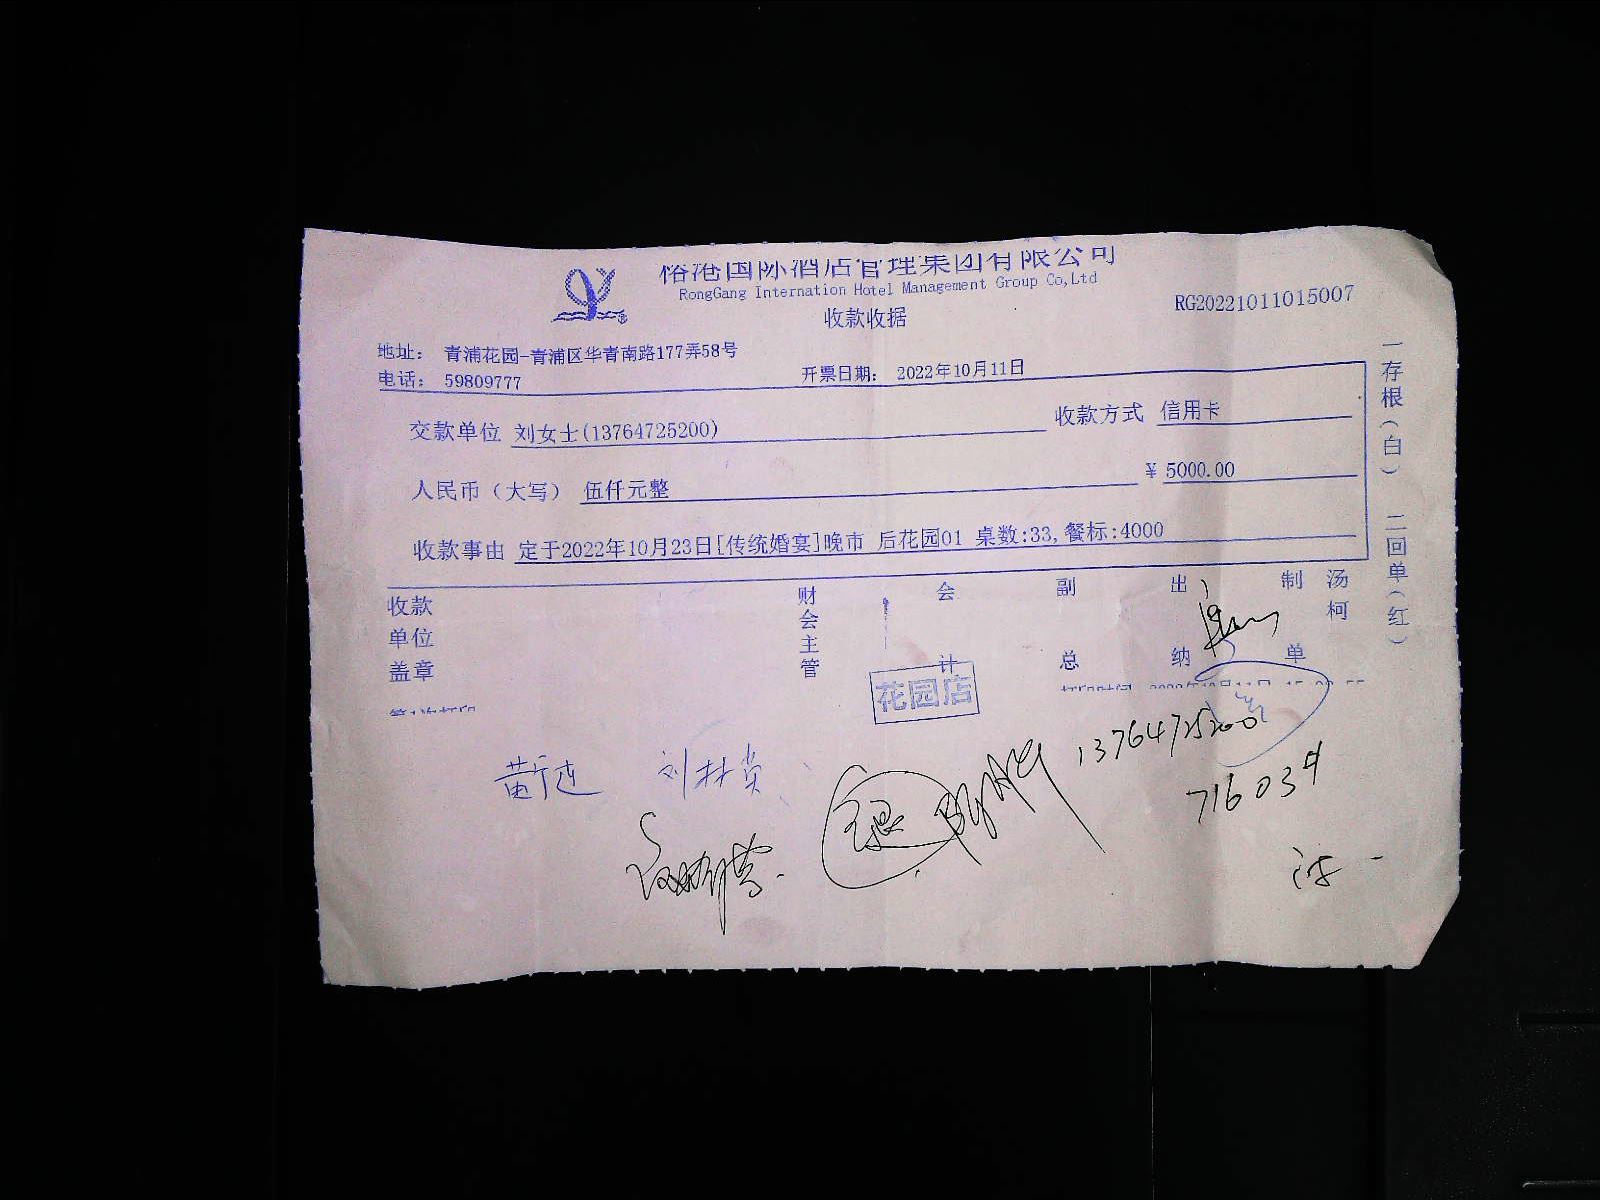 榕港国际酒店管理集团有限公司
RongGang Internation Hotel Management Group Co,Ltd
收款收据
RG20221011015007
地址： 青浦花园-青浦区华青南路177弄58号
电话： 59809777
开票日期： 2022年10月11日
交款单位 刘女士(13764725200)
收款方式 信用卡
人民币（大写） 伍仟元整
¥ 5000.00
收款事由 定于2022年10月23日[传统婚宴]晚市 后花园01 桌数:33,餐标:4000
一存根（白） 二回单（红）
收款单位盖章
财会主管
会计
副总
出纳
制单
汤柯
花园店
13764725200
716034